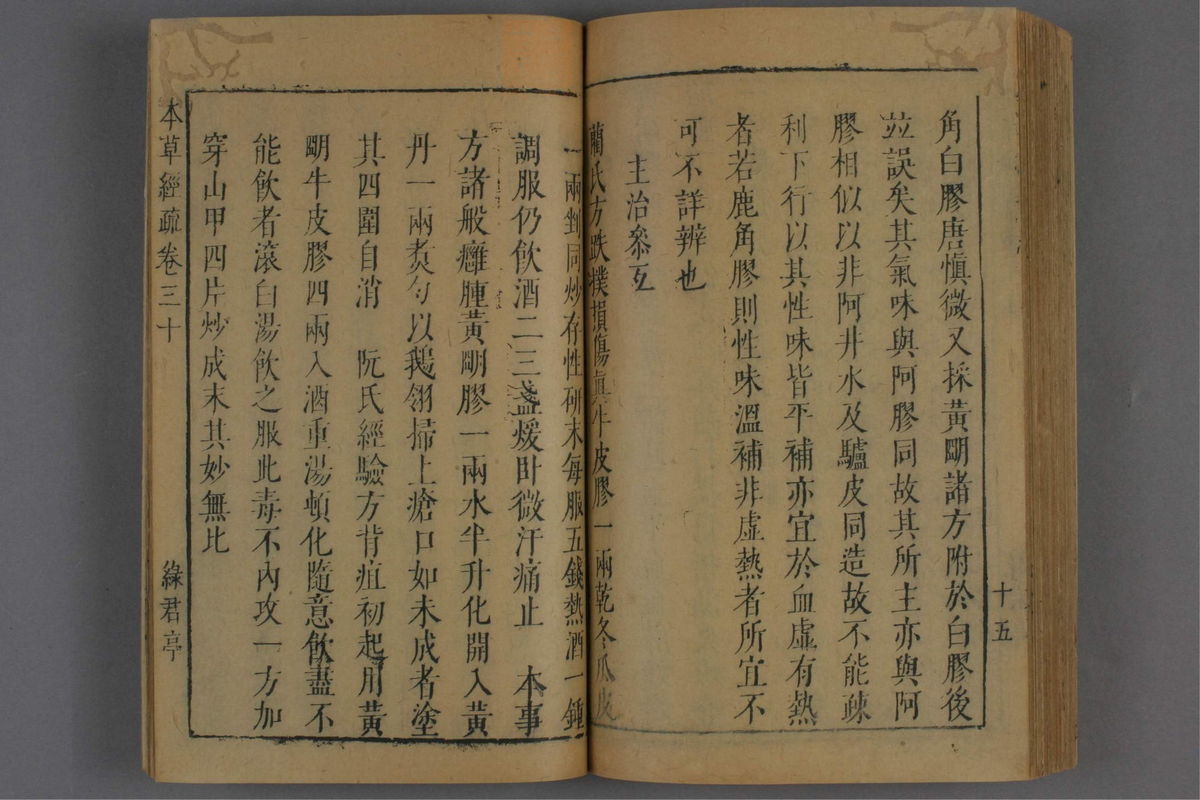 十五
角白膠唐慎微又採黃明諸方附於白膠後
並誤矣其氣味與阿膠同故其所主亦與阿
膠相似以非阿井水及驢皮同造故不能疎
利下行以其性味皆平補亦宜於血虛有熱
者若鹿角膠則性味溫補非虛熱者所宜不
可不詳辨也
主治參互
藺氏方跌撲損傷真牛皮膠一兩乾冬瓜皮
一兩剉同炒存性研末每服五錢熱酒一鍾
調服仍飲酒二三盞煖臥微汗痛止　本事
方諸般癰腫黃明膠一兩水半升化開入黃
丹一兩煑勻以鵝翎掃上瘡口如未成者塗
其四圍自消　阮氏經驗方背疽初起用黃
明牛皮膠四兩入酒重湯頓化隨意飲盡不
能飲者滾白湯飲之服此毒不內攻一方加
穿山甲四片炒成末其妙無比
本草經疏卷三十
綠君亭